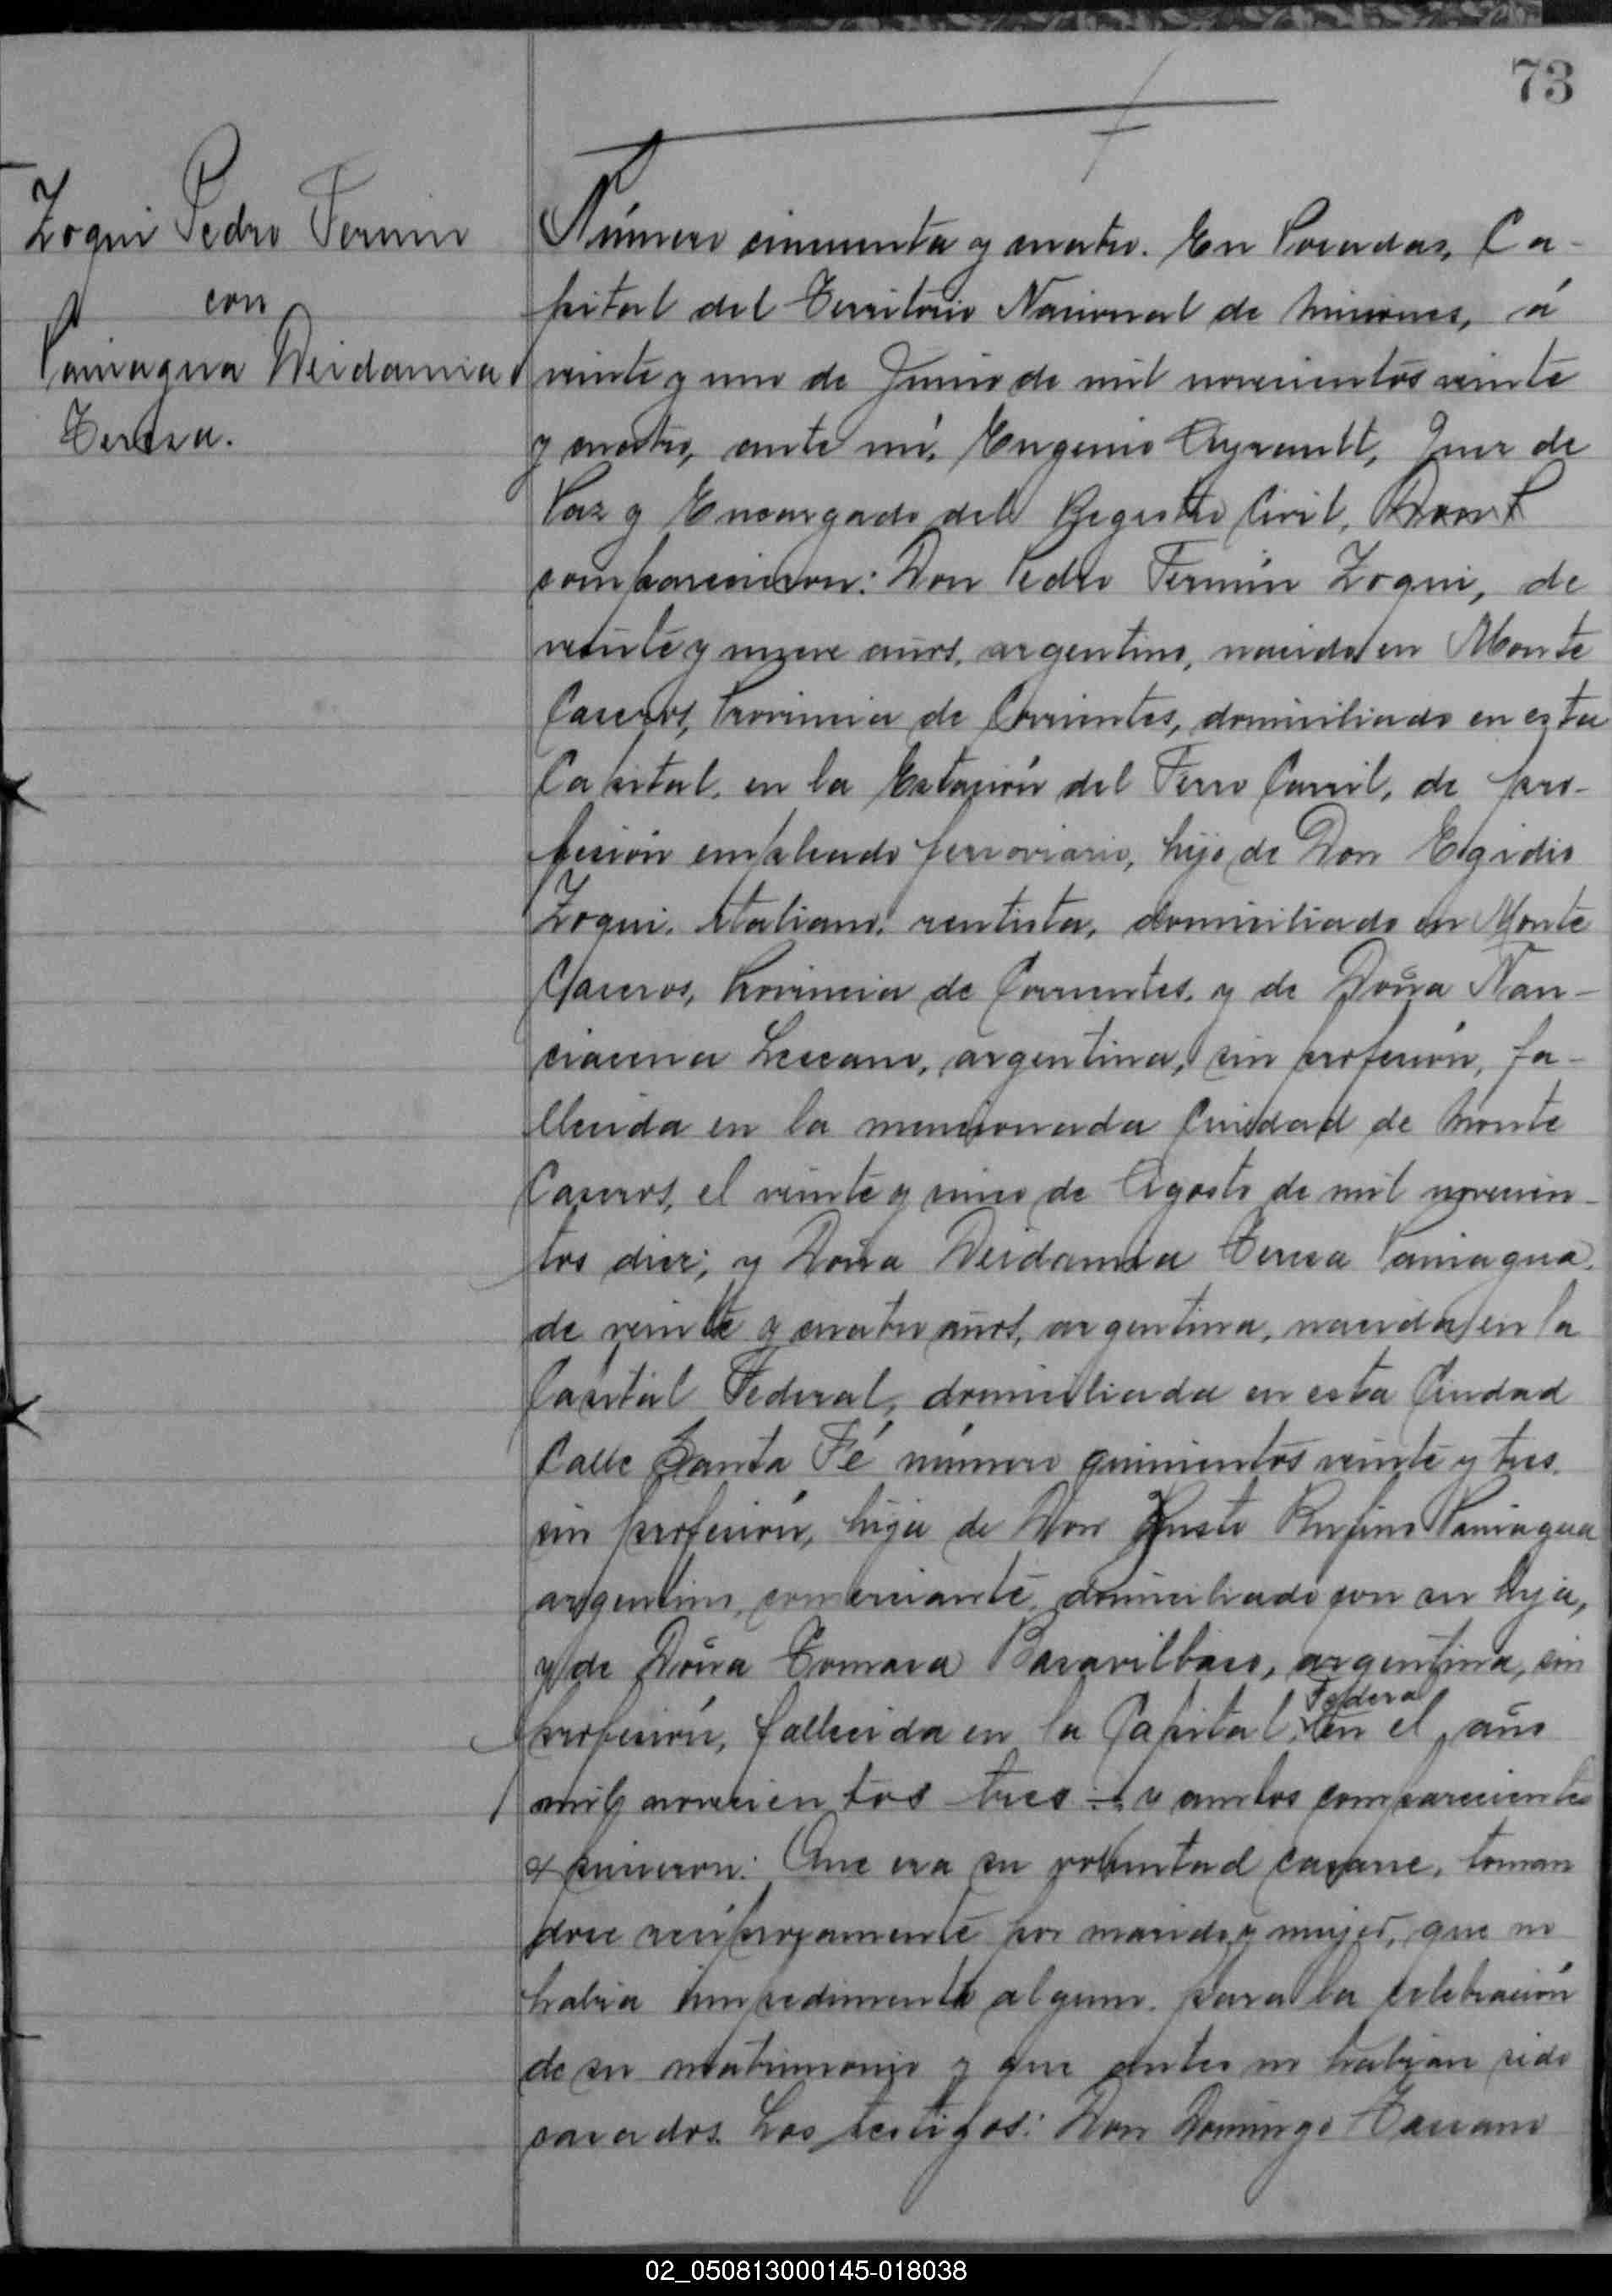 73
Zoqui Pedro Fermin
con
Paniagua Deidamia
Teresa.
Número cincuenta y cuatro. En Posadas, Ca-
pital del Territorio Nacional de Misiones, á
veinte y uno de Junio de mil novecientos veinte
y cuatro, ante mí, Eugenio Ayrault, Juez de
Paz y Encargado del Registro Civil,
comparecieron: Don Pedro Fermín Zoqui, de
veinte y nueve años, argentino, nacido en Monte
Caseros, Provincia de Corrientes, domiciliado en esta
Capital, en la Estación del Ferro Carril, de pro-
fesión empleado ferroviario, hijo de Don Egidio
Zoqui, italiano, rentista, domiciliado en Monte
Caseros, Provincia de Corrientes, y de Doña Nan-
ciacena Lescano, argentina, sin profesión, fa-
llecida en la mencionada Ciudad de Monte
Caseros, el veinte y cinco de Agosto de mil novecien-
tos diez; y Doña Deidamia Teresa Paniagua,
de veinte y cuatro años, argentina, nacida en la
Capital Federal, domiciliada en esta Ciudad
Calle Santa Fé número quinientos veinte y tres,
sin profesión, hija de Don Justo Rufino Paniagua
argentino, comerciante, domiciliado con su hija,
y de Doña Tomasa Basavilbaso, argentina, sin
Federal
profesión, fallecida en la Capital, en el año
mil novecientos tres; y ambos comparecientes
expusieron: Que era su voluntad casarse, toman
dose recíprocamente por marido y mujer, que no
habia impedimento alguno para la celebración
de su matrimonio y que antes no habian sido
casados. Los testigos: Don Domingo
02_050813000145-018038